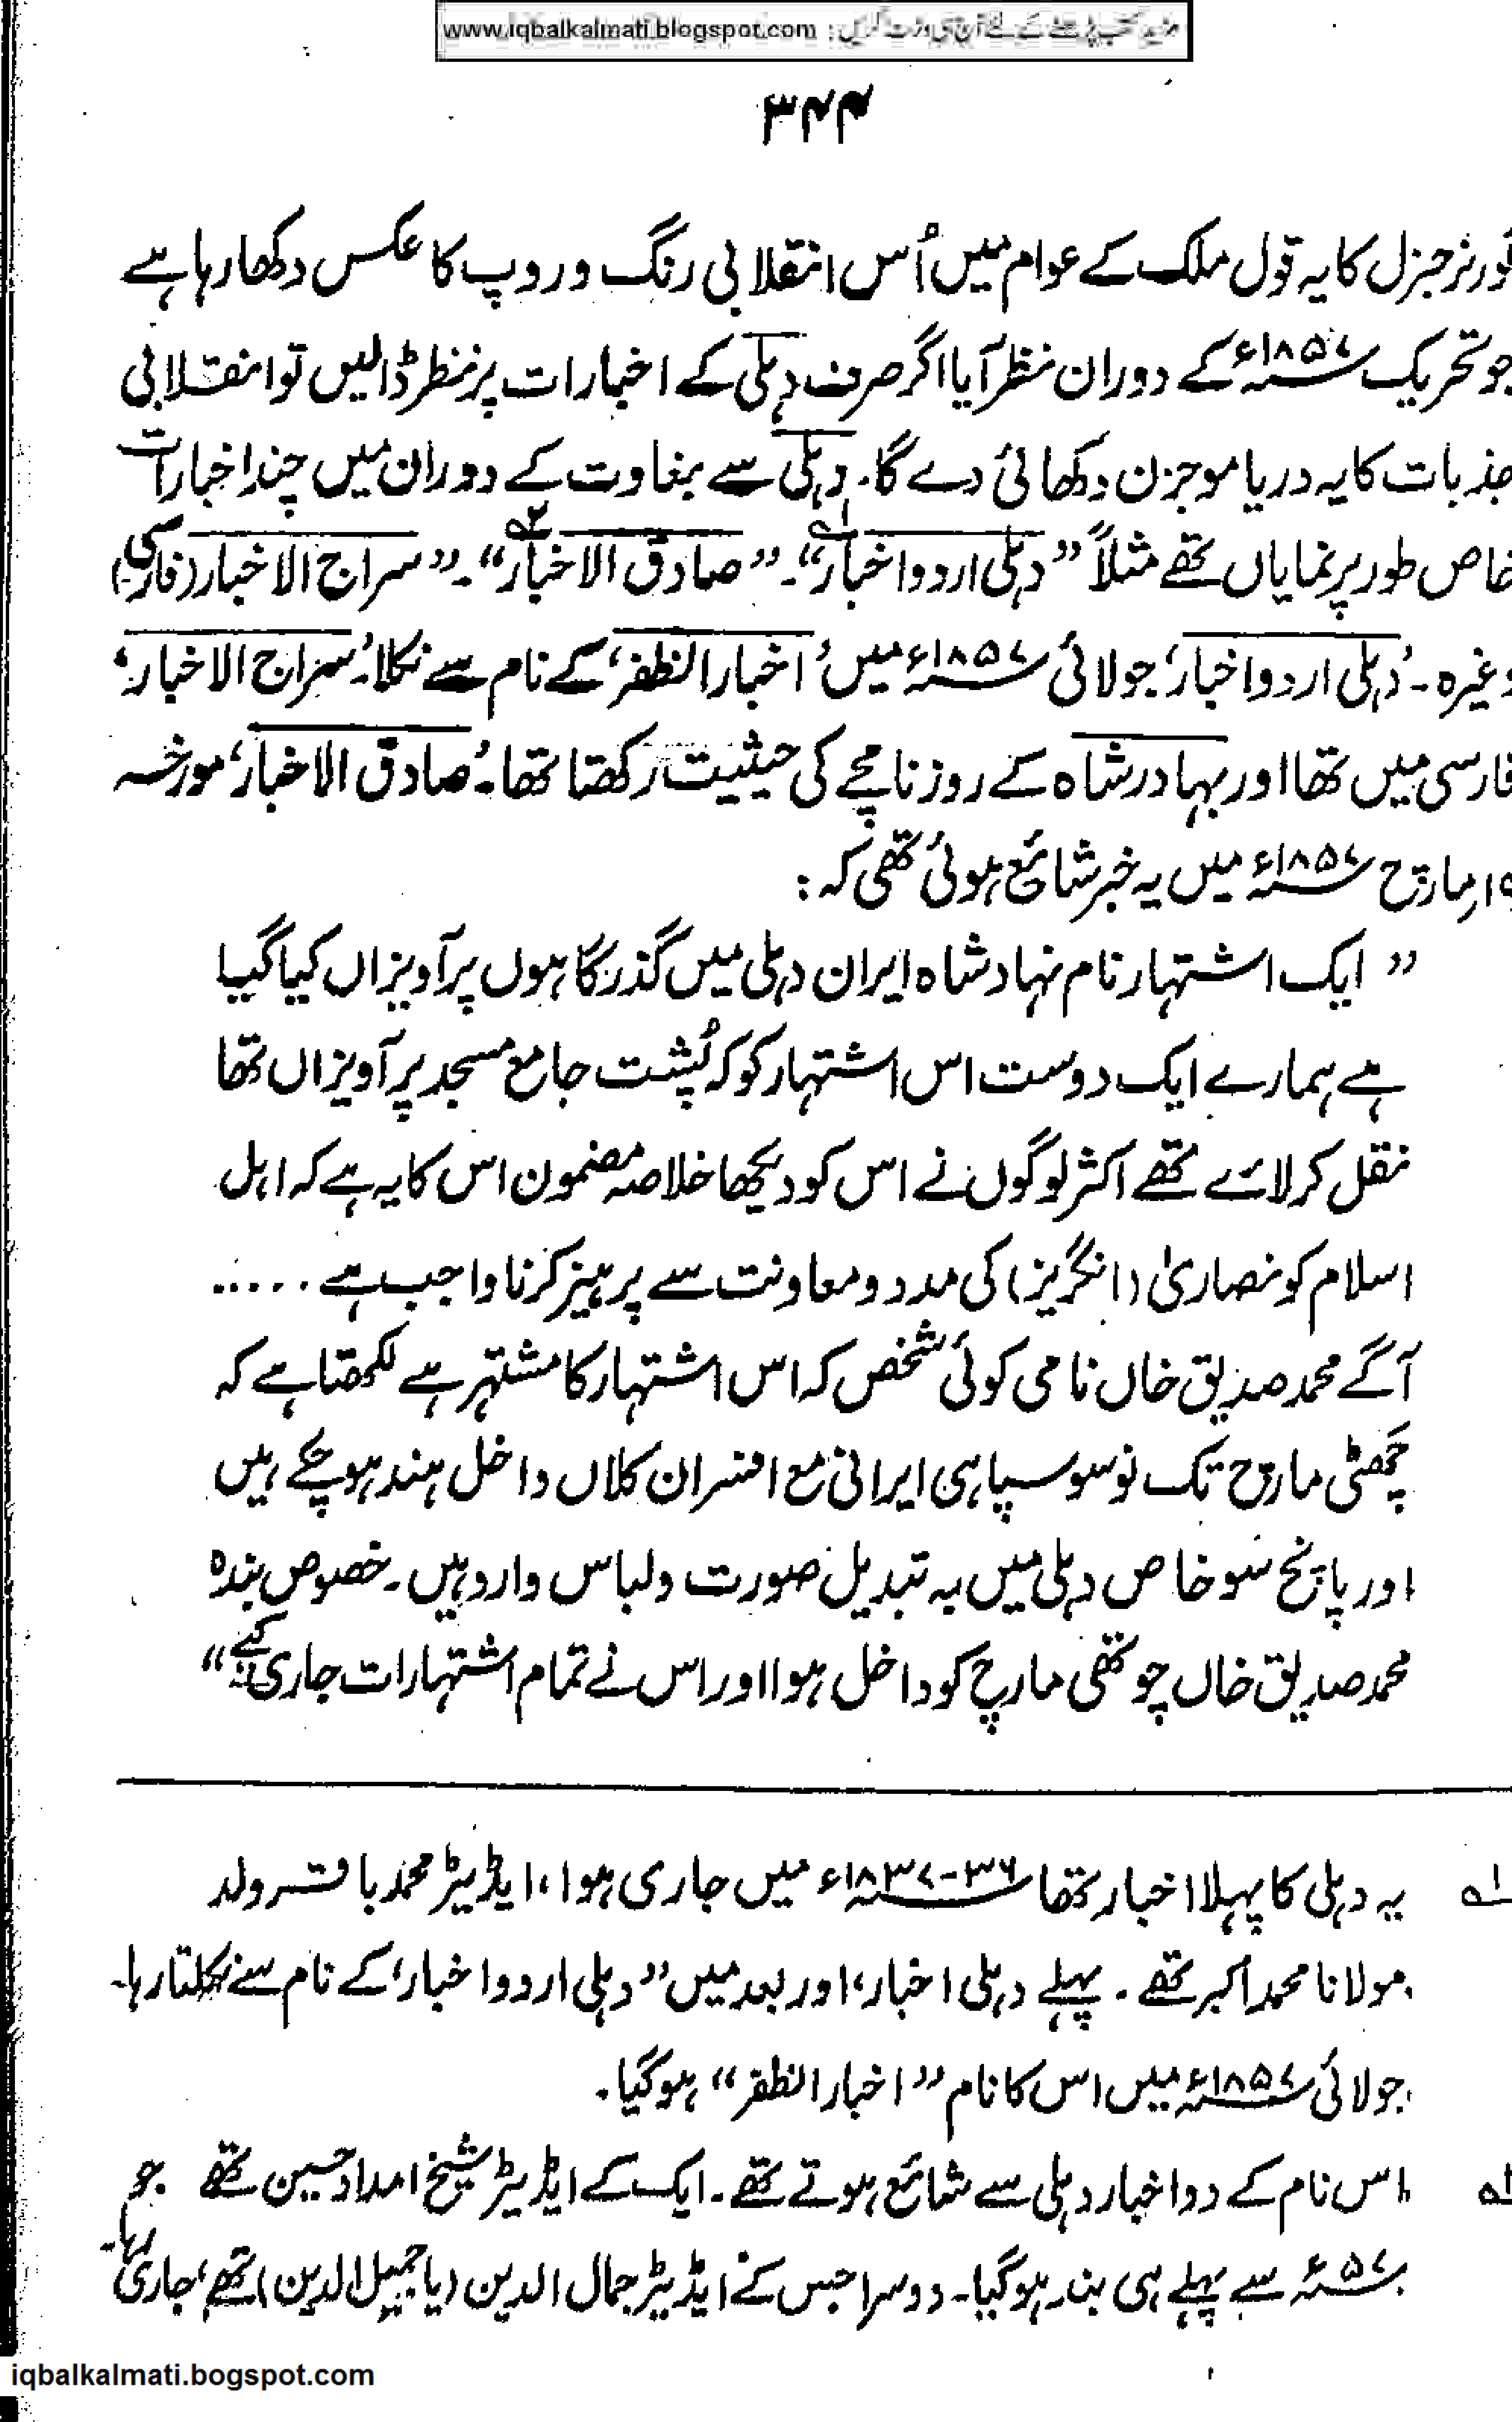 مزید کتب پڑھنے کے لئے آج ہی وزٹ کریں : www.iqbalkalmati.blogspot.com
۳۴۴
گورنر جنرل کا یہ قول ملک کے عوام میں اُس انقلابی رنگ و روپ کا عکس دکھا رہا ہے
جو تحریک ۱۸۵۷ء کے دوران نظر آیا اگر صرف دہلی کے اخبارات پر نظر ڈالیں تو انقلابی
جذبات کا یہ دریا موجزن دکھائی دے گا۔ دہلی سے بغاوت کے دوران میں چند اخبارات
خاص طور پر نمایاں تھے مثلاً ”دہلی اردو اخبار“۱؎۔ ”صادق الاخبار“۲؎۔ ”سراج الاخبار (فارسی)
وغیرہ۔ ’دہلی اردو اخبار‘ جولائی ۱۸۵۷ء میں ’اخبار الظفر‘ کے نام سے نکلا۔ ’سراج الاخبار‘
فارسی میں تھا اور بہادر شاہ کے روزنامچے کی حیثیت رکھتا تھا۔ ’صادق الاخبار‘ مورخہ
مارچ ۱۸۵۷ء میں یہ خبر شائع ہوئی تھی کہ :
” ایک اشتہار نام نہاد شاہ ایران دہلی میں گذرگاہوں پر آویزاں کیا گیا
ہے ہمارے ایک دوست اس اشتہار کو کہ پُشت جامع مسجد پر آویزاں تھا
نقل کر لائے تھے اکثر لوگوں نے اس کو دیکھا خلاصہ مضمون اس کا یہ ہے کہ اہل
اسلام کو نصاریٰ (انگریز) کی مدد و معاونت سے پرہیز کرنا واجب ہے .....
آگے محمد صدیق خاں نامی کوئی شخص کہ اس اشتہار کا مشتہر ہے لکھتا ہے کہ
چھٹی مارچ تک نو سو سپاہی ایرانی مع افسران کلاں داخل ہند ہو چکے ہیں
اور پانچ سو خاص دہلی میں بہ تبدیل صورت ولباس وارد ہیں۔ خصوص بندہ
محمد صدیق خاں چوتھی مارچ کو داخل ہوا اور اس نے تمام اشتہارات جاری کئے“
۱؎ یہ دہلی کا پہلا اخبار تھا ۳۶-۱۸۳۷ء میں جاری ہوا، ایڈیٹر محمد باقر ولد
مولانا محمد اکبر تھے۔ پہلے دہلی اخبار، اور بعد میں ”دہلی اردو اخبار‘ کے نام سے نکلتا رہا۔
جولائی ۱۸۵۷ء میں اس کا نام ”اخبار الظفر“ ہو گیا۔
۲؎ اس نام کے دو اخبار دہلی سے شائع ہوتے تھے۔ ایک کے ایڈیٹر شیخ امداد حسین تھے جو
۵۷ء سے پہلے ہی بند ہو گیا۔ دوسرا جس کے ایڈیٹر جمال الدین (یا جمیل الدین) تھے، جاری رہا۔
iqbalkalmati.bogspot.com